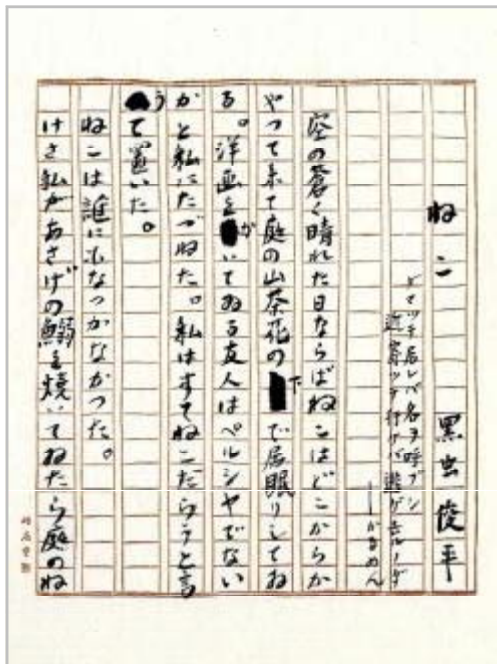 ねこ
黒虫俊平
ダマツテ居レバ名ヲ呼ブシ
近寄ツテ行ケバ逃ゲ去ルノダ
―かるめん
空の蒼く晴れた日ならばねこはどこからか
やつて来て庭の山茶花の下で居眠りしてゐ
る。洋画をがいてゐる友人はペルシヤでない
かと私にたづねた。私はすてねこだらうと言
うて置いた。
ねこは誰にもなつかなかつた。
けさ私があさげの鰯を焼いてゐたら庭のね